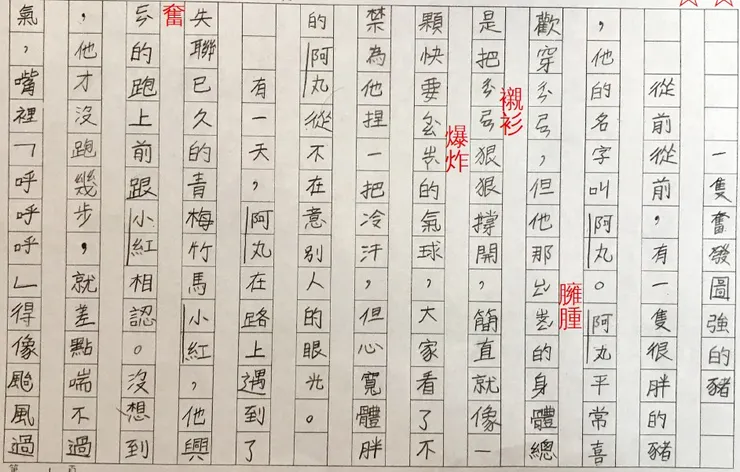 一隻奮發圖強的豬
從前從前，有一隻很胖的豬
，他的名字叫阿丸。阿丸平常喜
歡穿，但他那的身體總
臃腫
襯衫
是把狠狠撐開，簡直就像一
爆炸
顆快要的氣球，大家看了不
禁為他捏一把冷汗，但心寬體胖
的阿丸從不在意別人的眼光。
有一天，阿丸在路上遇到了
失聯已久的青梅竹馬小紅，他興
奮
的跑上前跟小紅相認。沒想到
，他才沒跑幾步，就差點喘不過
氣，嘴裡「呼呼呼」得像颱風過